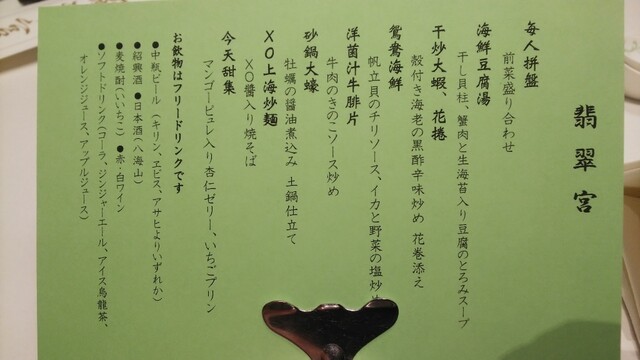 翡翠宮
每人拼盤
前菜盛り合わせ
海鮮豆腐湯
干し貝柱、蟹肉と生海苔入り豆腐のとろみスープ
干炒大蝦、花捲
殻付き海老の黒酢辛味炒め 花巻添え
鴛鴦海鮮
帆立貝のチリソース、イカと野菜の塩炒め
洋菌汁牛腓片
牛肉のきのこソース炒め
砂鍋大蠔
牡蠣の醤油煮込み 土鍋仕立て
XO上海炒麺
XO醬入り焼そば
今天甜集
マンゴーピュレ入り杏仁ゼリー、いちごプリン
お飲物はフリードリンクです
●中瓶ビール(キリン、ヱビス、アサヒよりいずれか)
●紹興酒 ●日本酒(八海山)
●麦焼酎(いいちこ) ●赤・白ワイン
●ソフトドリンク(コーラ、ジンジャーエール、アイス烏龍茶、
オレンジジュース、アップルジュース)